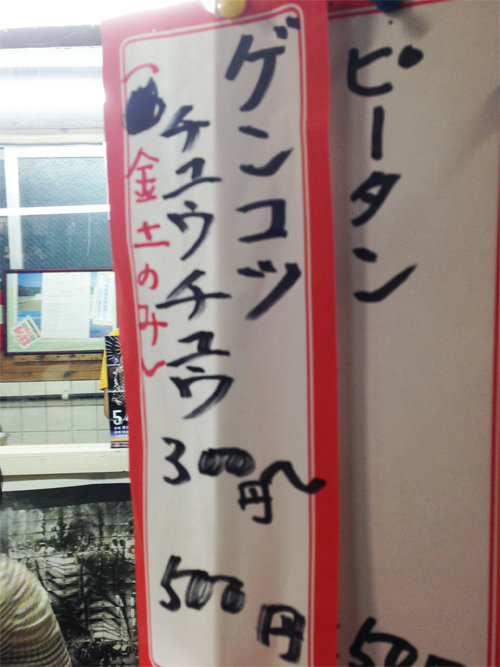 ピータン
50
ゲンコツ
チュウチュウ
300円〜
500円
(金土のみ)